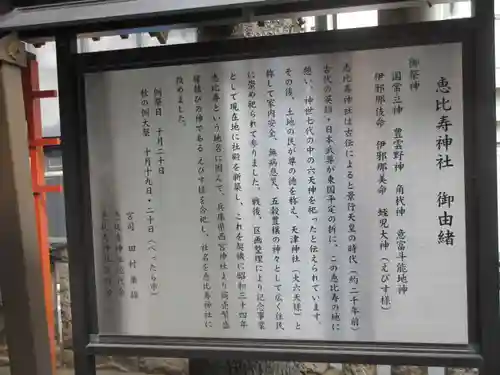 恵比寿神社 御由緒
御祭神
国常立神 豊雲野神 角杙神 意富斗能地神
伊邪那伎命 伊邪那美命 蛭児大神(えびす様)
恵比寿神社は古伝によると景行天皇の時代(約二千年前)
古代の英雄・日本武尊が東国平定の折に、この恵比寿の地に
憩い、神世七代の中の六天神を祀ったと伝えられています。
その後、土地の民が尊の徳を称え、天津神社(大六天様)と
称して家内安全、無病息災、五穀豊穣の神々として広く住民
に崇め祀られて参りました。戦後、区画整理により記念事業
として現在地に社殿を新築し、これを契機に昭和三十四年
兵庫県西宮神社より商売繁盛
縁結びの神である えびす様を合祀し、社名を恵比寿神社に
恵比寿という地名に因み、
改めました。
例祭日 十月二十日
秋の例大祭 十月十九日・二十日(べったら市)
宮司 田村